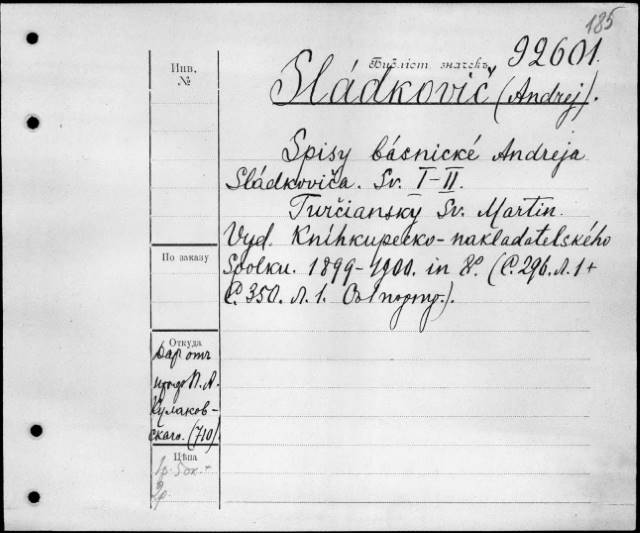 185
Библіот. значекъ 92601.
Инв.
№
Sládkovič (Andrej).
Spisy básnické Andreja
Sládkoviča. Sv. I-II.
Turčianský Sv. Martin.
Vyd. Kníhkupecko-nakladatelského
Spolku. 1899-1900. in 8°. (С. 296. л. 1 +
С. 350. л. 1. Съ 1 портр.).
По заказу
Откуда
Даръ отъ
проф. П. А.
Кулаков-
скаго. (710)
Цѣна
1р. 50к. +
2р.